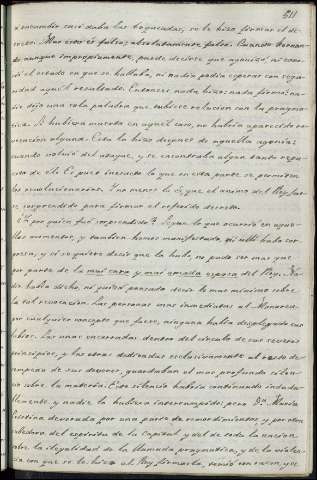 511
creto. Mas esto es falso, absolutamente falso. Cuando Fernan-
do aunque impropiamente, puede decirse que agonizó, ni cono-
ció el estado en que se hallaba, ni nadie podía esperar con segu-
ridad aquel resultado. Entonces nada hizo: nada firmó: na-
die dijo una sola palabra que tubiese relacion con la pragmá-
tica. Si hubiera muerto en aquel caso, no habria aparecido re-
vocacion alguna. Esta la hizo despues de aquella agonía:
cuando volvió del ataque, y se encontraba algun tanto repues-
to de él. Es pues inesacto lo que en esta parte se permiten
los revolucionarios. Ya menos lo es, que el animo del Rey fue-
se, sorprendido para firmar el referido decreto.
¿Y por quien fué sorprendido? Segun lo que ocurrió en aque-
llos momentos, y tambien hemos manifestado, ni allí hubo sor-
presa, y si se quiere decir que la hubo, no pudo ser mas que
por parte de la mas cara y mas amada esposa del Rey. Na-
die habia dicho, ni quizá pensado decir lo mas minimo sobre
la tal revocacion. Las personas mas inmediatas al Monarca
por cualquier concepto que fuese, ninguna habia desplegado sus
labios. Las unas encerradas dentro del circulo de sus severos
principios, y las otras dedicadas esclusivamente al
de sus deveres, guardaban el mas profundo silen-
cio sobre la materia. Este silencio hubiera continuado induda-
blemente, y nadie le hubiera interrumpido; pero Dª Maria
Cristina devorada por una parte de remordimientos, y por otra
del espiritu de la Capital y del de toda la nacion
sobre la ilegalidad de la llamada pragmatica, y de la violen-
cia con que se le hizo al Rey firmarla,